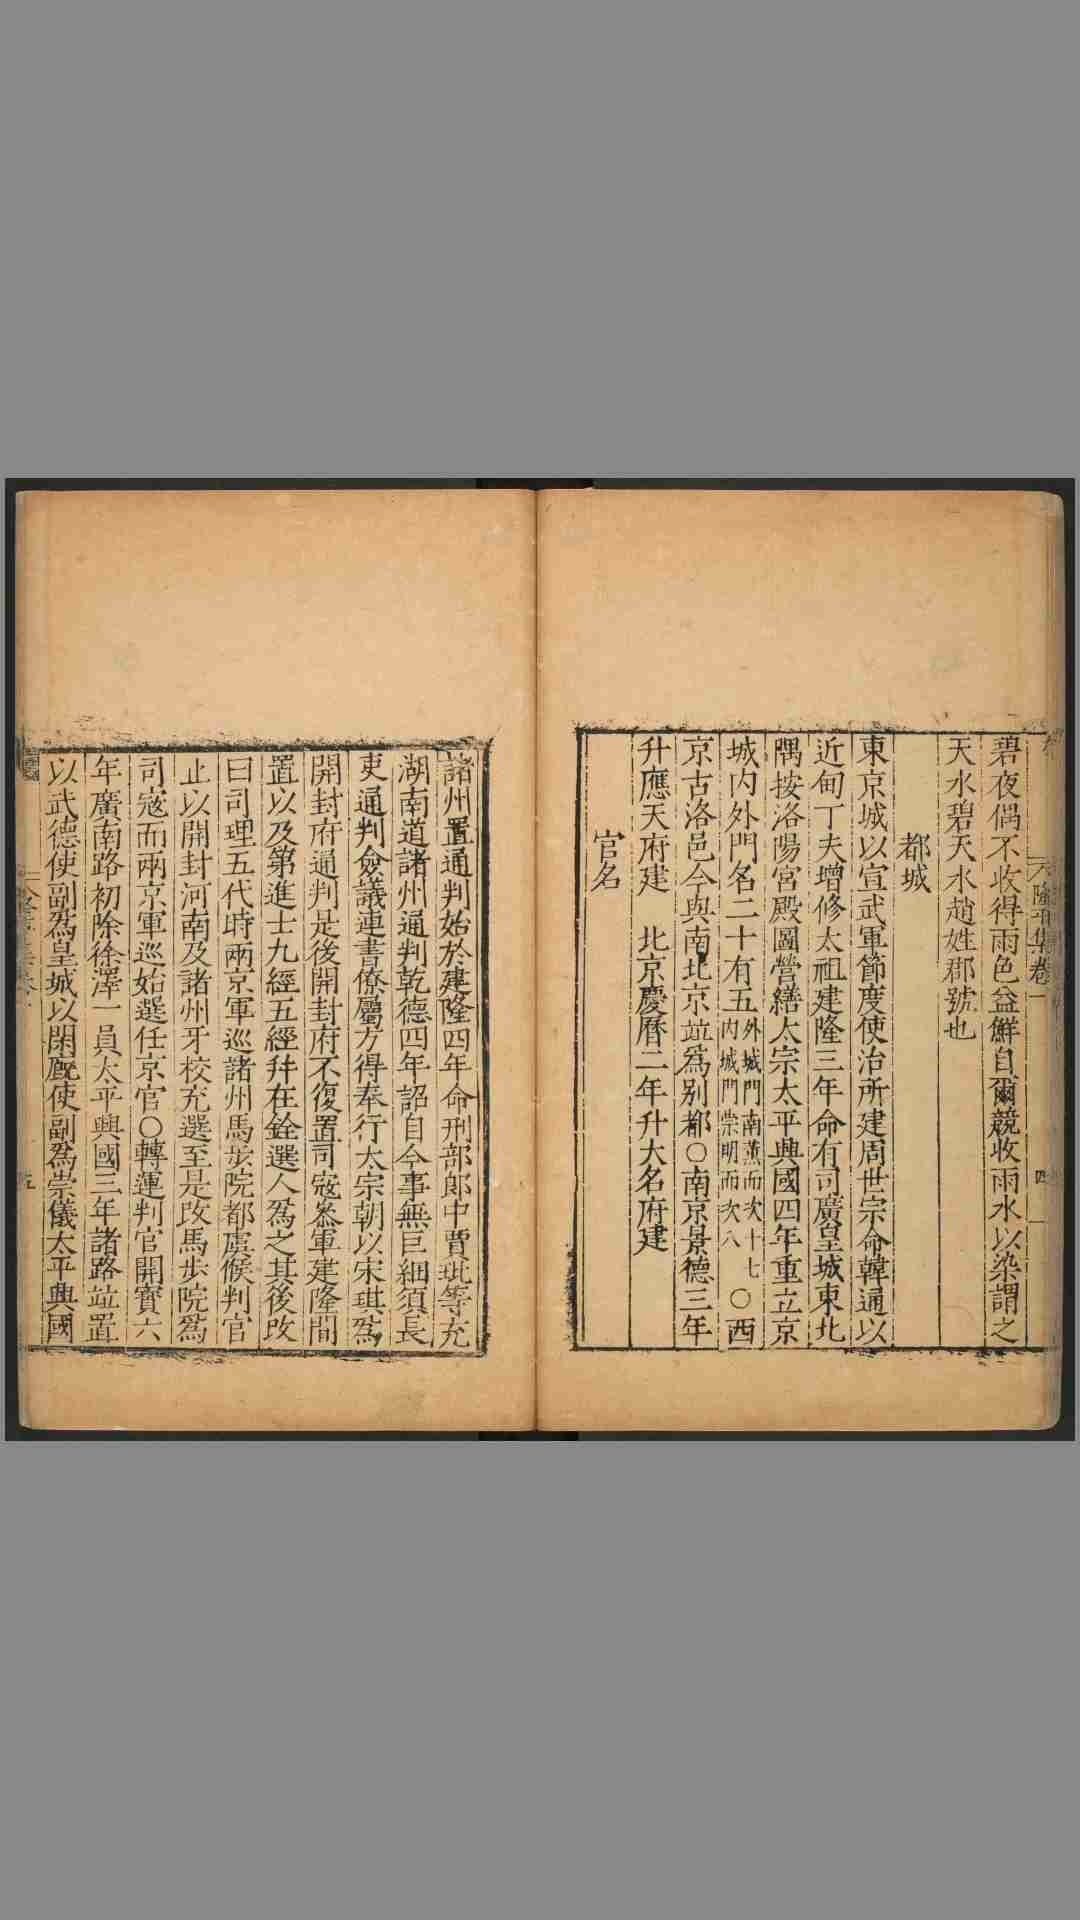 隆平集卷一
四
碧夜偶不收得雨色益鮮自爾競收雨水以染謂之
天水碧天水趙姓郡號也
都城
東京城以宣武軍節度使治所建周世宗命韓通以
近甸丁夫增修太祖建隆三年命有司廣皇城東北
隅按洛陽宮殿圖營繕太宗太平興國四年重立京
城内外門名二十有五外城門南薫而次十七内城門崇明而次八○西
京古洛邑今與南北京竝爲别都○南京景德三年
升應天府建　北京慶曆二年升大名府建
官名
諸州置通判始於建隆四年命刑部郎中賈玭等充
湖南道諸州通判乾德四年詔自今事無巨細須長
吏通判僉議連書僚屬方得奉行太宗朝以宋琪爲
開封府通判是後開封府不復置司寇叅軍建隆間
置以及第進士九經五經幷在銓選人爲之其後改
曰司理五代時兩京軍巡諸州馬步院都虞候判官
止以開封河南及諸州牙校充選至是改馬步院爲
司寇而兩京軍巡始選任京官○轉運判官開寶六
年廣南路初除徐澤一員太平興國三年諸路竝置
以武德使副爲皇城以閑廐使副爲崇儀太平興國
五